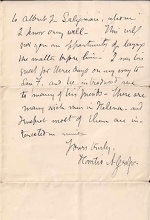 to Albert L Seligman, whom
I know very well — This will
give you an opportunity of laying
the matter before him. I was his
guest for three days on my way to
and he introduced me
to many of his friends — There are
many rich men in Helena, and
most of them are in-
terested in mines
Yours truly,